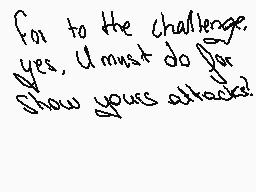 For to the challenge,
yes, U must do for
show yours attacks!